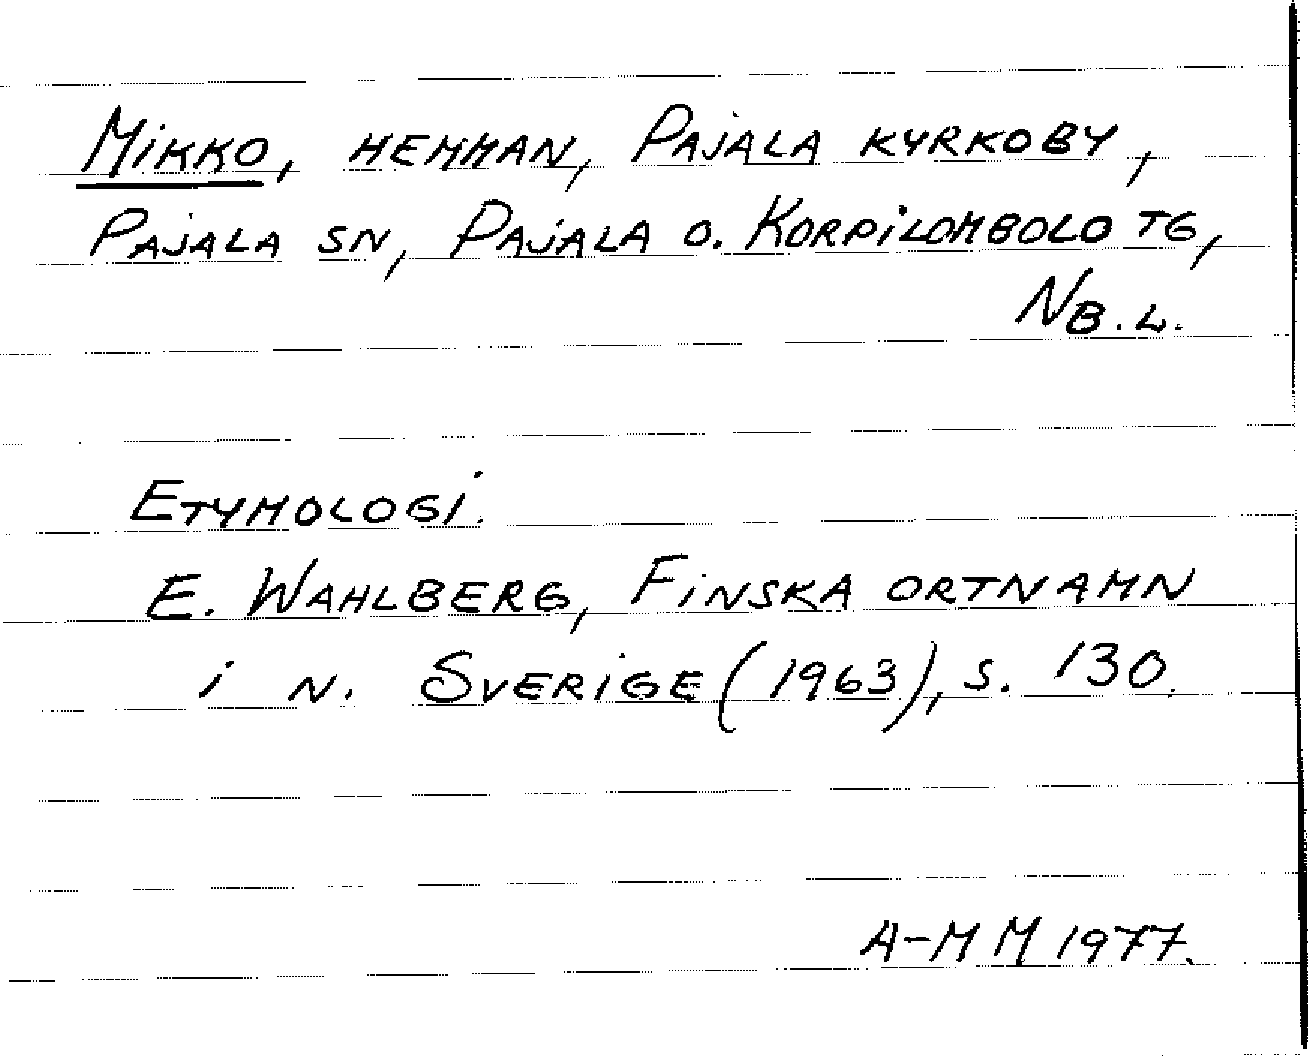 Mikko, hemman, Pajala kyrkoby,
Pajala sn, Pajala o. Korpilombolo tg,
Nb.l.
Etymologi.
E. Wahlberg, Finska ortnamn
i n. Sverige (1963), s. 130.
A-M M 1977.